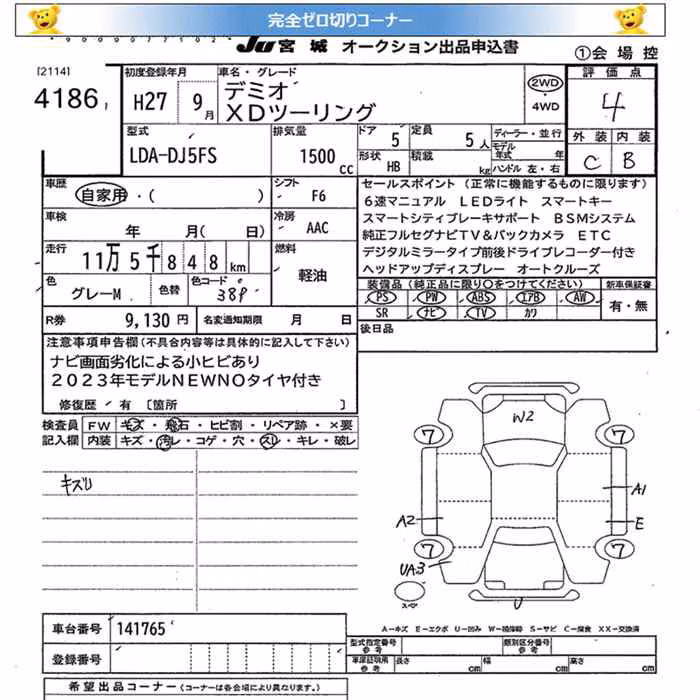 完全ゼロ切りコーナー
JU 宮城 オークション出品申込書
①会場控
[2114]
4186
初度登録年月
H27 9月
車名・グレード
デミオ
XDツーリング
2WD
・
4WD
評価点
4
外装 内装
C B
型式
LDA-DJ5FS
排気量
1500cc
ドア 5
定員 5人
形状 HB
積載 kg
ディーラー・並行
モデル年式 年
ハンドル 左・右
車歴
自家用・( )
シフト F6
車検
年 月( 日)
冷房 AAC
走行
11万5千848km
燃料 軽油
色 グレーM
色替
色コード 38P
R券 9,130円
名変通知期限 月 日
セールスポイント(正常に機能するものに限ります)
6速マニュアル LEDライト スマートキー
スマートシティブレーキサポート BSMシステム
純正フルセグナビTV&バックカメラ ETC
デジタルミラータイプ前後ドライブレコーダー付き
ヘッドアップディスプレー オートクルーズ
装備品(純正品に限り○をつけてください)
PS PW ABS エアB AW
SR ナビ TV カワ
新車保証書
有・無
後日品
注意事項申告欄(不具合内容等は具体的に記入して下さい)
ナビ画面劣化による小ヒビあり
2023年モデルNEWNOタイヤ付き
修復歴・有 〔箇所 〕
検査員記入欄
FW キズ・飛石・ヒビ割・リペア跡・×要
内装 キズ・汚レ・コゲ・穴・スレ・キレ・破レ
キズU
W2
7
7
A1
A2
E
7
7
UA3
スペヤ
U
A-キズ E-エクボ U-凹み W-補修跡 S-サビ C-腐食 XX-交換済
車台番号 141765
登録番号
型式指定番号 参考
類別区分番号 参考
車庫証明用 参考
長さ cm 幅 cm 高さ cm
希望出品コーナー(コーナーは各会場により異なります。)